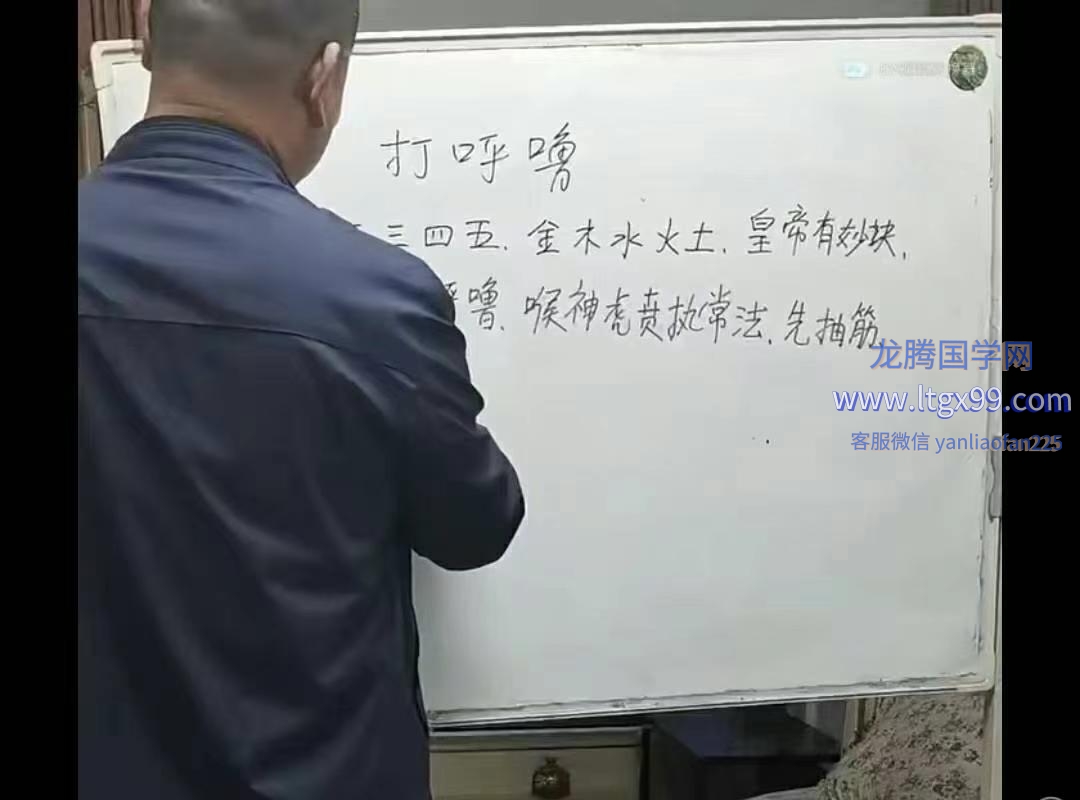 打呼噜
三四五.金木水火土.皇帝有妙块,
呼噜.喉神虎贲执常法.先抽筋
龙腾国学网
www.ltgx99.com
客服微信 yanliaofan225